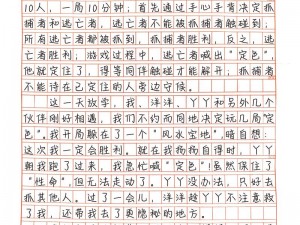 10人，一局10分钟；首先通过手心手背决定抓
捕者和逃亡者，逃亡者不能被抓捕者触碰到；
所有逃亡者都被抓到，抓捕者胜利，反之，逃
亡者胜利；游戏过程中，逃亡者喊出“定色”，
他就定住了，得等同伴触碰才能解开；抓捕者
不能待在已定住的人旁边守候。
这一天放学，我、洋洋、丫丫和另外几个
伙伴刚好相遇，我们不约而同地决定玩几局“定
色”。我开局躲在了一个“风水宝地”，暗自想：
这次我一定会胜利。就在我得意时，丫丫
朝我跑了过来，我急忙喊“定色”虽然保住了
“性命”，但无法走动了。丫丫没办法，只好去
抓其他人。过了一会儿，洋洋趁丫丫不注意救
了我，还带我去了更隐秘的地方。